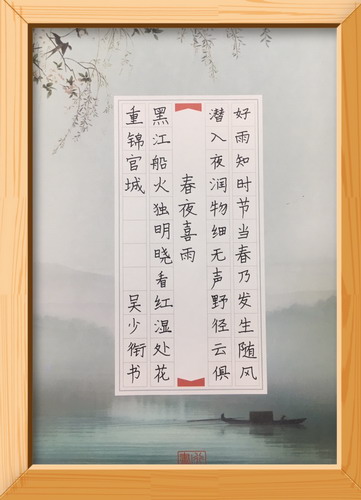 好雨知时节当春乃发生随风
潜入夜润物细无声野径云俱
春夜喜雨
黑江船火独明晓看红湿处花
重锦官城 吴少衔书